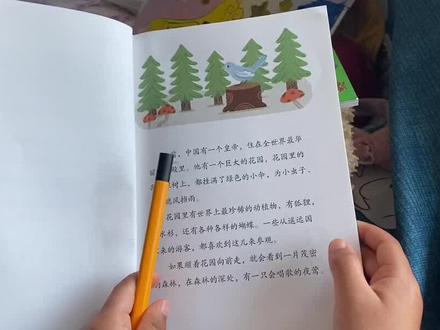 ，中国有一个皇帝，住在全世界最华
殿里。他有一个巨大的花园，花园里的
树上，都挂满了绿色的小伞，为小虫子、
遮风挡雨。
花园里有世界上最珍稀的动植物，有狐狸，
水杉，还有各种各样的蝴蝶。一些从遥远国
来的游客，都喜欢到这儿来参观。
如果顺着花园向前走，就会看到一片茂密
的森林，在森林的深处，有一只会唱歌的夜莺。